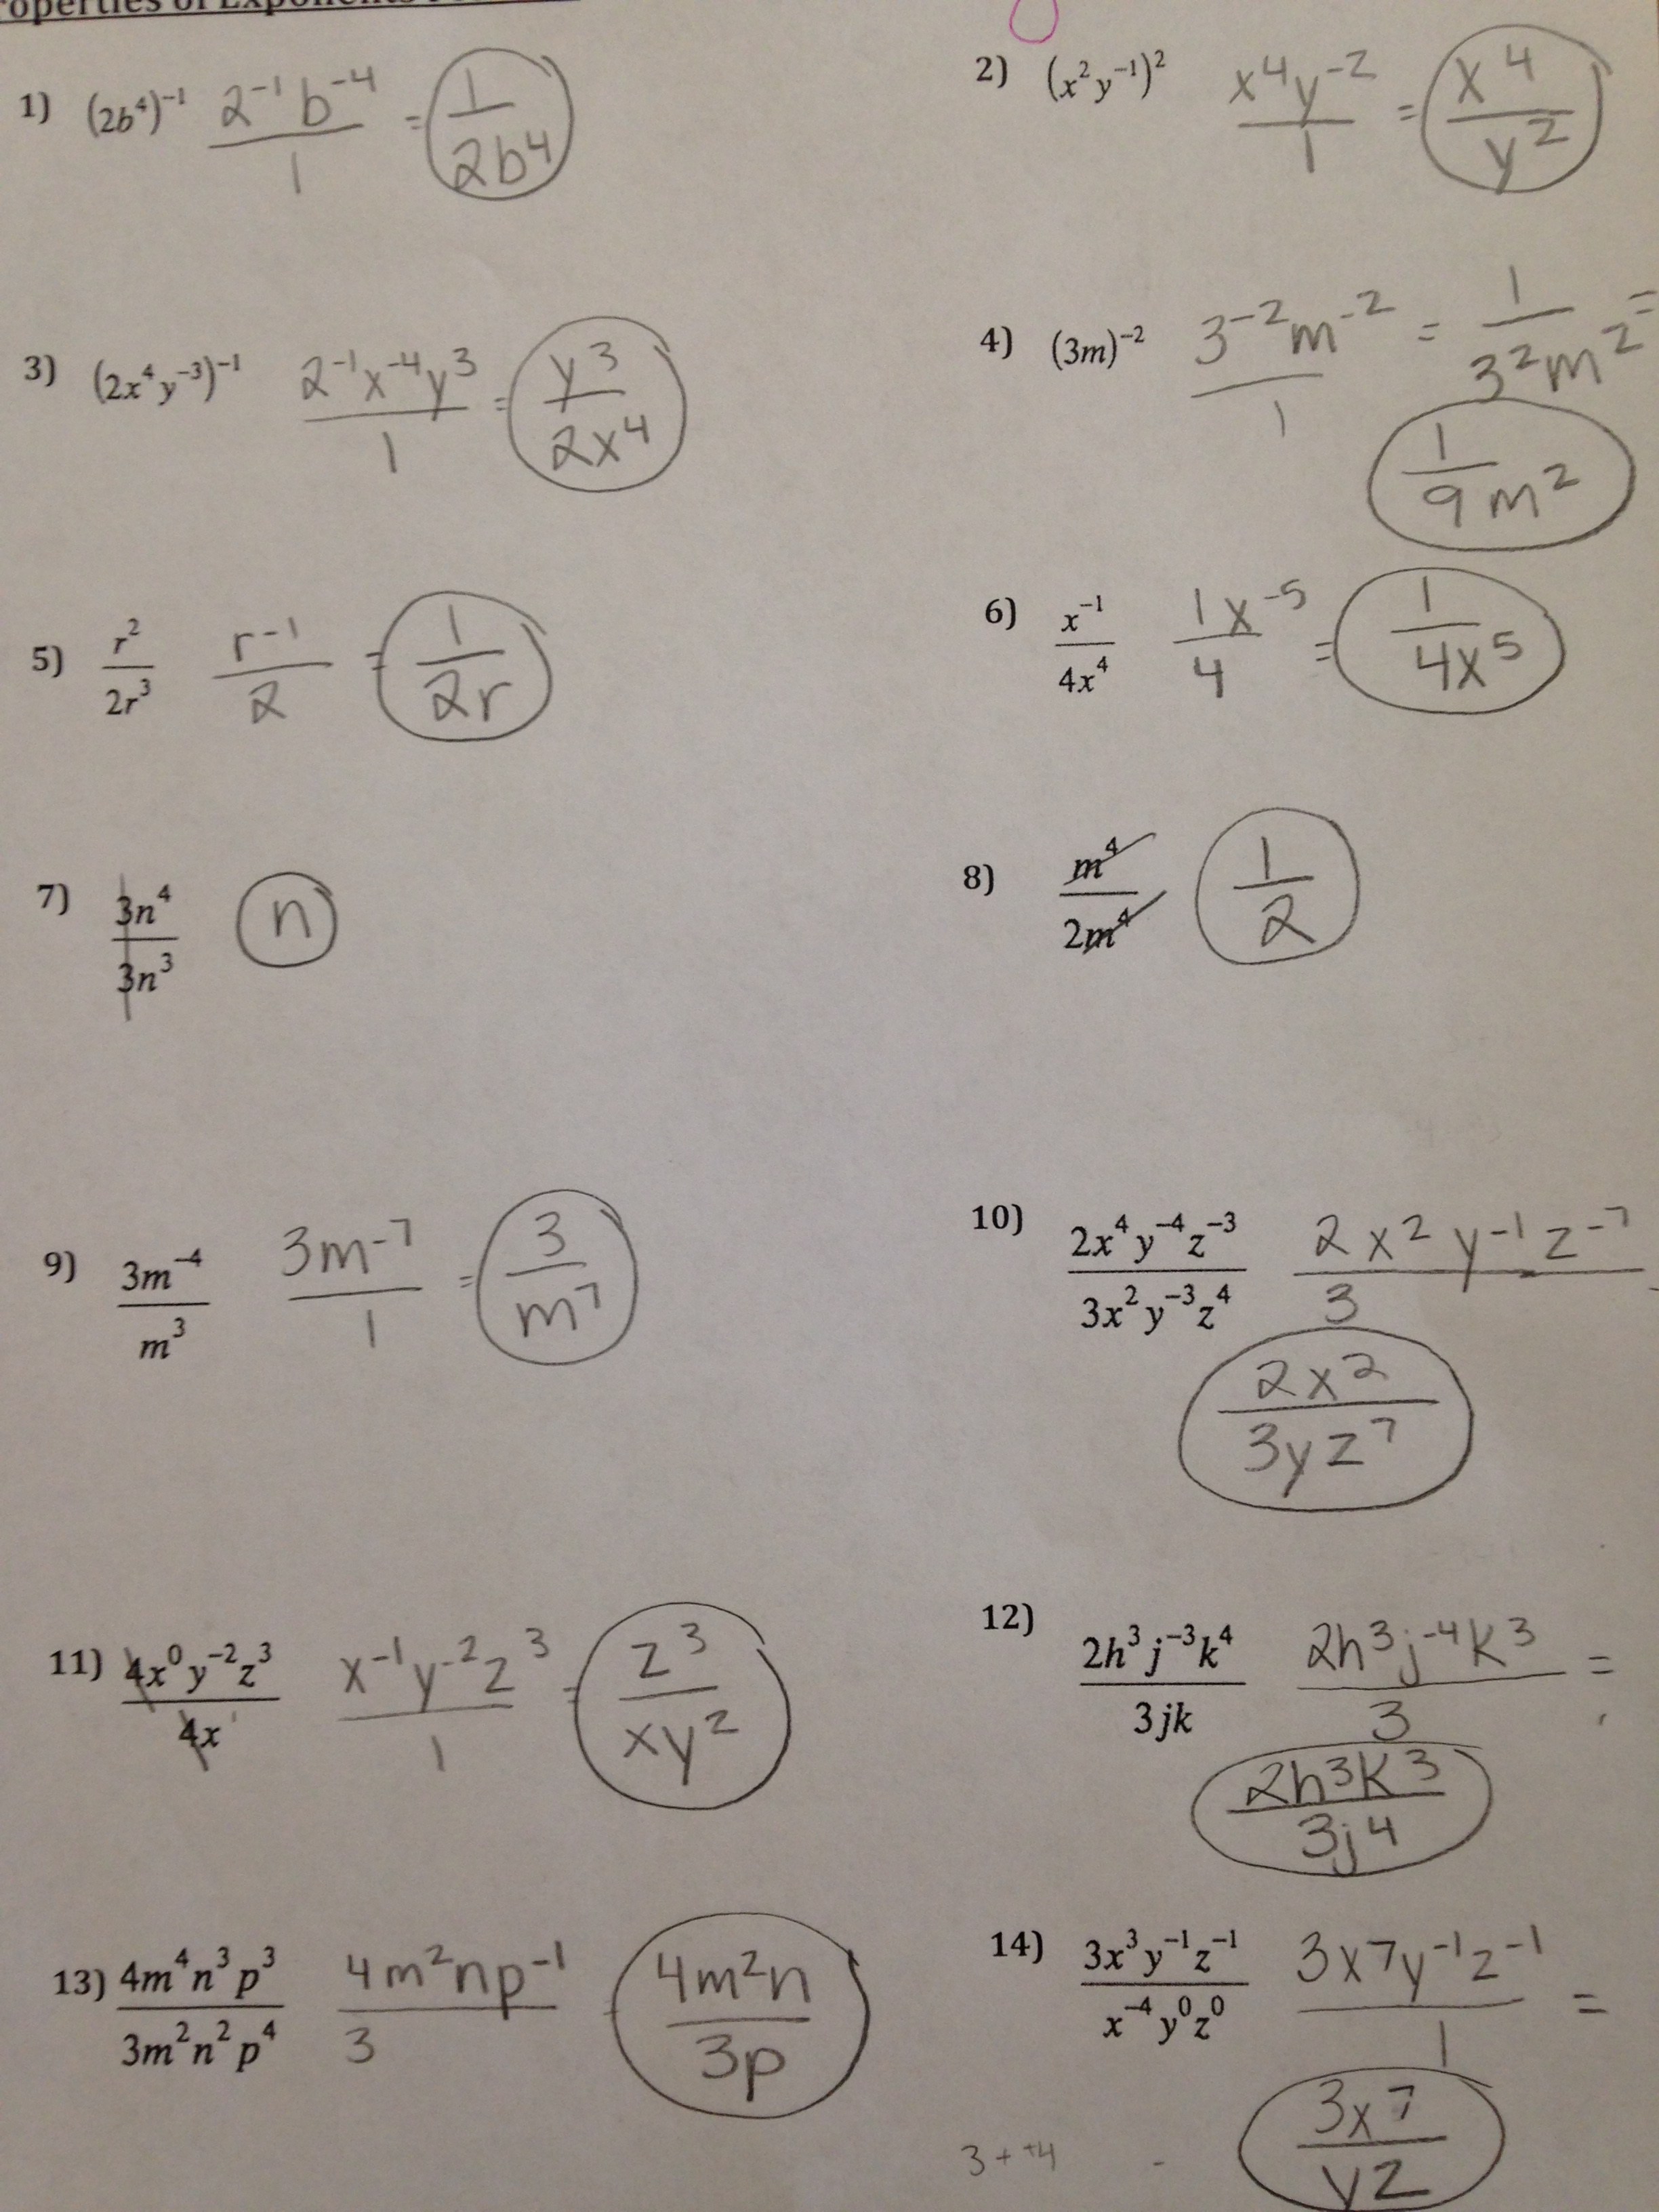 1) (2b⁴)⁻¹ 2⁻¹b⁻⁴/1 = 1/2b⁴
2) (x²y⁻¹)² x⁴y⁻²/1 = x⁴/y²
3) (2x⁴y⁻³)⁻¹ 2⁻¹x⁻⁴y³/1 = y³/2x⁴
4) (3m)⁻² 3⁻²m⁻²/1 = 1/3²m² =
1/9m²
5) r²/2r³ r⁻¹/2 = 1/2r
6) x⁻¹/4x⁴ 1x⁻⁵/4 = 1/4x⁵
7) 3n⁴/3n³ n
8) m⁴/2m⁴ 1/2
9) 3m⁻⁴/m³ 3m⁻⁷/1 = 3/m⁷
10) 2x⁴y⁻⁴z⁻³/3x²y⁻³z⁴ 2x²y⁻¹z⁻⁷/3
2x²/3yz⁷
11) 4x⁰y⁻²z³/4x¹ x⁻¹y⁻²z³/1 = z³/xy²
12) 2h³j⁻³k⁴/3jk 2h³j⁻⁴k³/3 =
2h³k³/3j⁴
13) 4m⁴n³p³/3m²n²p⁴ 4m²np⁻¹/3 = 4m²n/3p
14) 3x³y⁻¹z⁻¹/x⁻⁴y⁰z⁰ 3x⁷y⁻¹z⁻¹/1 =
3 + +4
3x⁷/yz